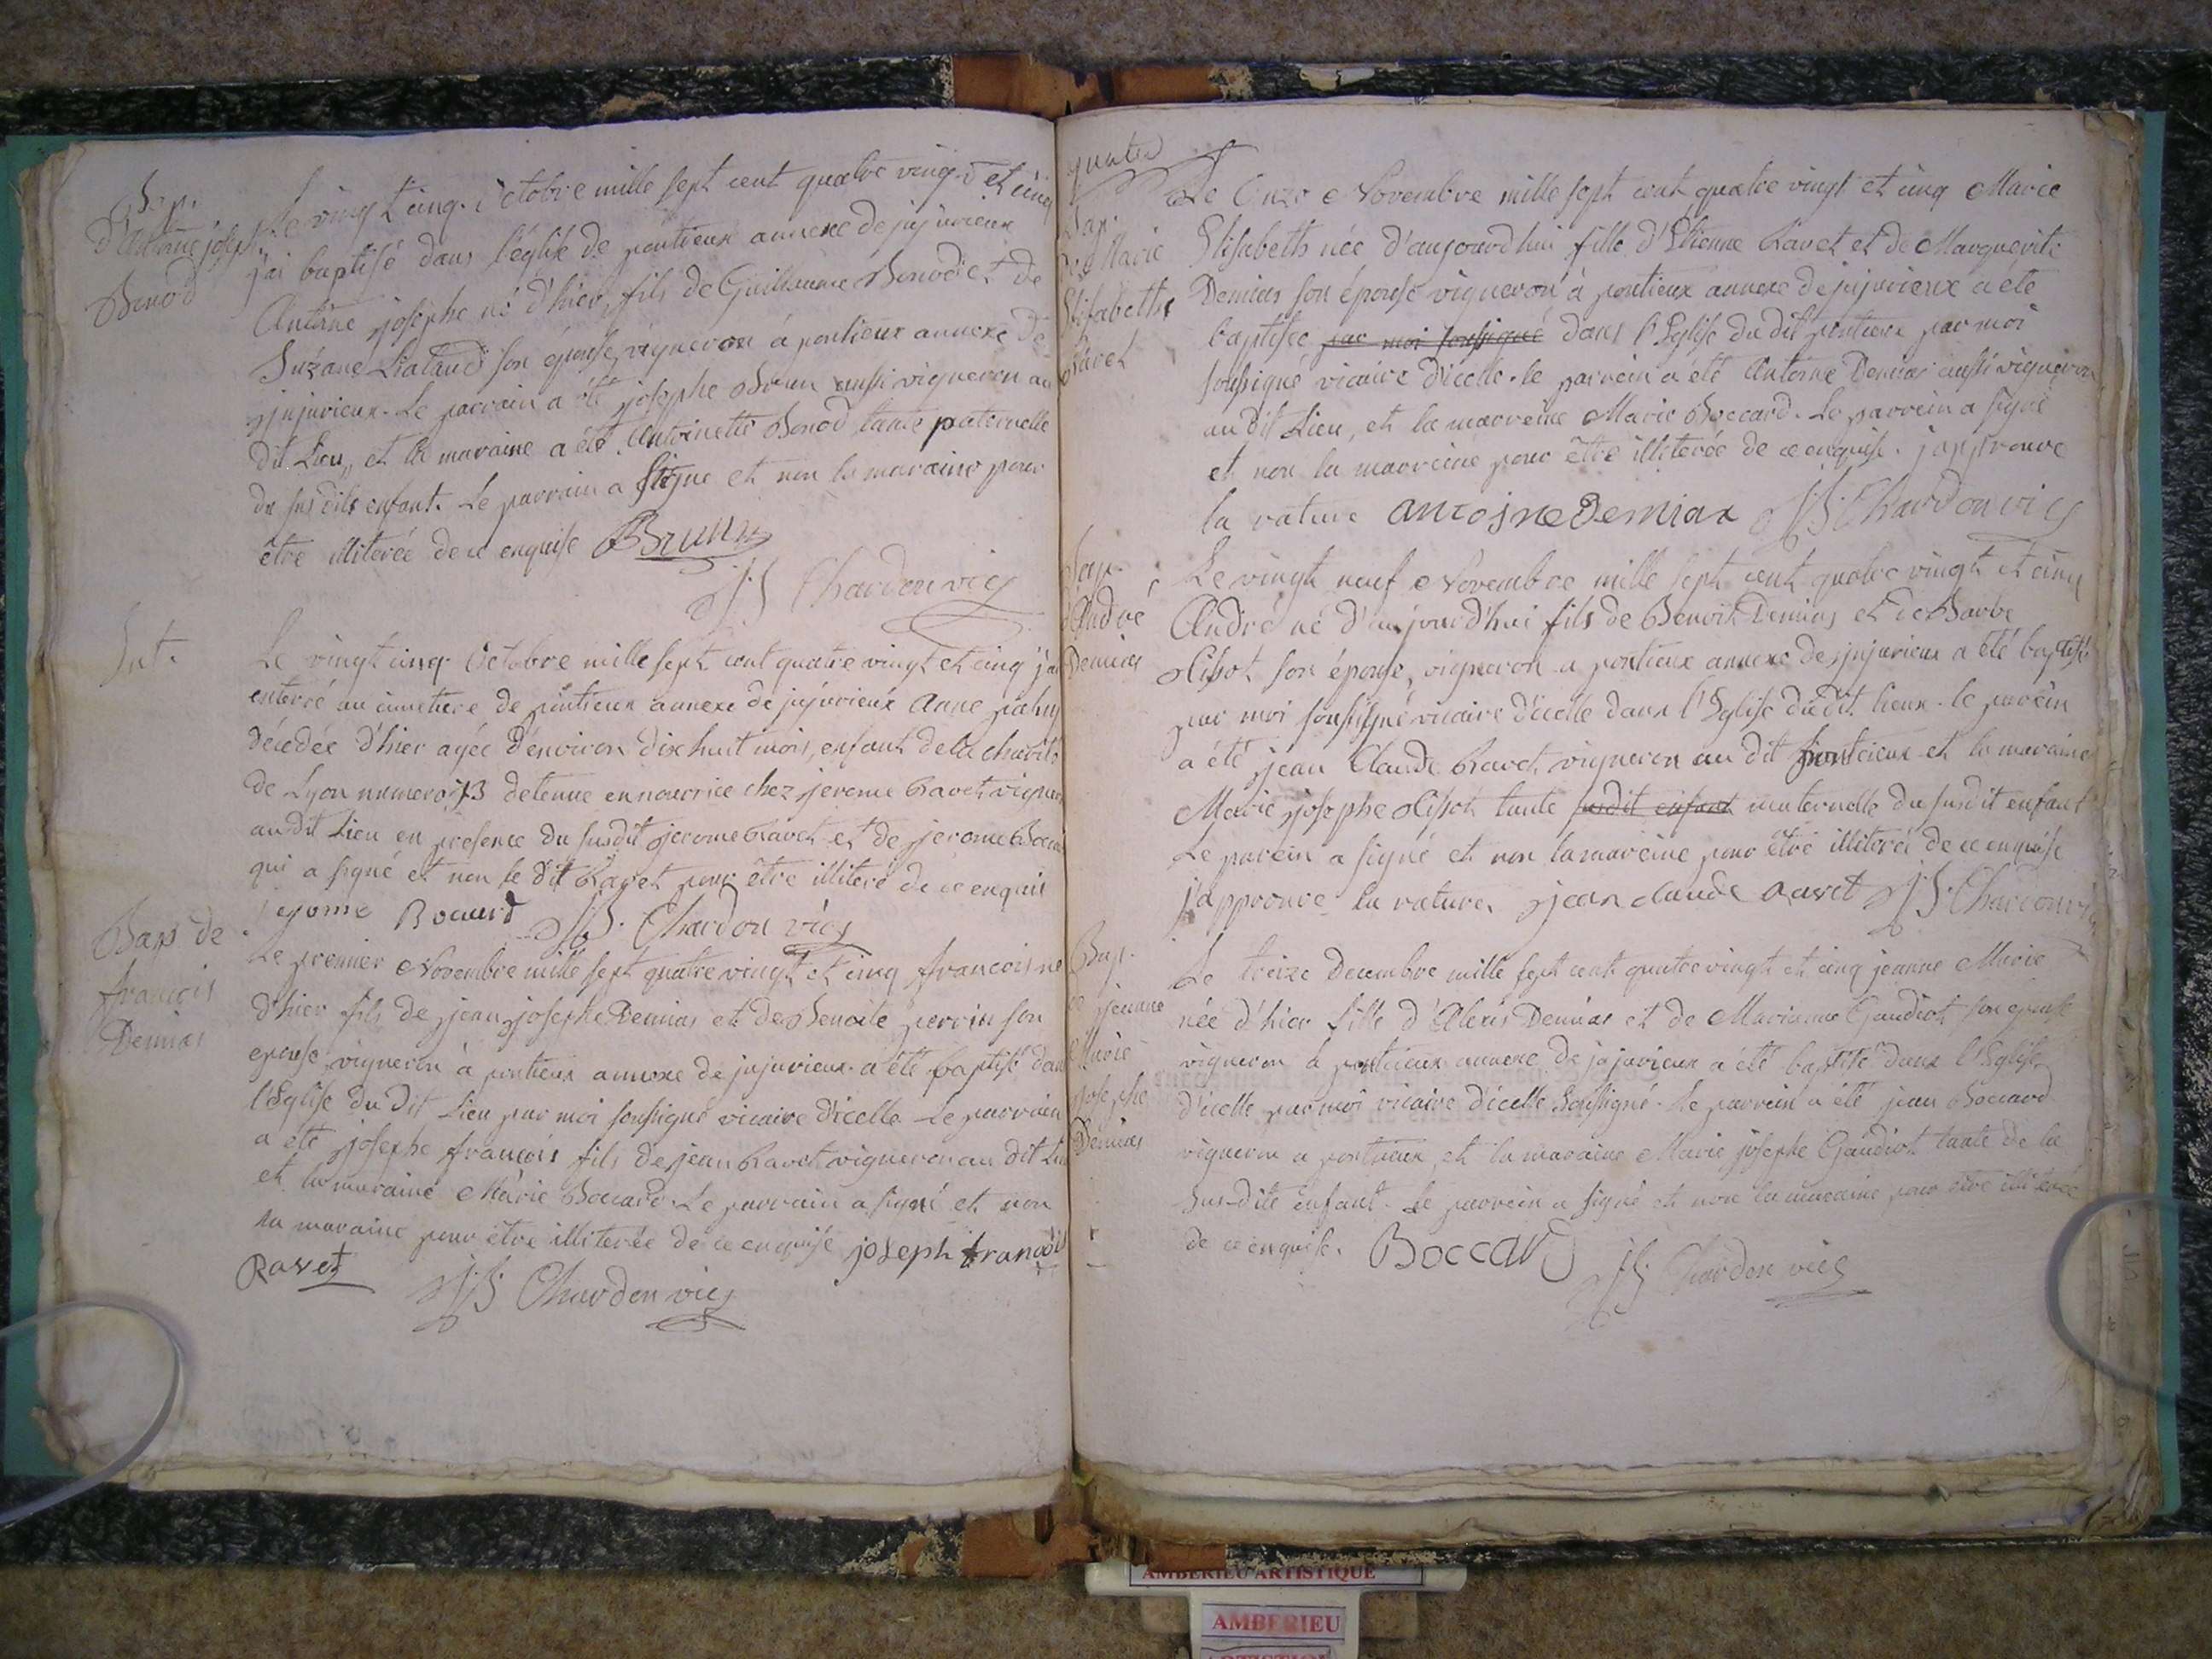 Bap.
d'Antoine joseph
Benod
Le vingt cinq. octobre mille sept cent quatre vingt et cinq
j'ai baptisé dans l'église de pontieux annexe de jujurieux
Antoine josephe né d'hier, fils de Guillaume Benod et de
Suzane son épouse, vigneron à pontieux annexe de
jujurieux. Le parrain a été josephe Brun aussi vigneron au
dit Lieu, et la maraine a été Antoinette Benod tante paternelle
du sus dits enfant. Le parrain a signe et non la maraine pour
être illiterée de ce enquise Brunn
Chardon vics
Int.
Le vingt cinq Octobre mille sept cent quatre vingt et cinq j'ai
enterré au cimetiere de pontieux annexe de jujurieux Anne
décedée d'hier agée d'environ dix huit mois, enfant de la charité
de Lyon numero detenue en nourrice chez jerome Ravet vigneron
au dit Lieu en presence du susdit jerome Ravet et de jerome
qui a signé et non le dit Ravet pour être illiteré de ce enquis
jerome Bocard Chardon vics
Bap. de
francois
Demias
Le premier Novembre mille sept quatre vingt et cinq francois né
d'hier fils de jean josephe Demias et de Benoite perrin son
epouse, vigneron à pontieux annexe de jujurieux a été baptisé dans
l'Eglise du dit Lieu par moi soussigné vicaire d'icelle. Le parrain
a été josephe françois fils de jean Ravet vigneron au dit Lieu
et la maraine Marie Boccard. Le parrain a signé et non
la maraine pour être illiterée de ce enquise joseph francois
Ravet Chardon vics
quatre
Bap.
de Marie
Elisabeths
Ravet
Le Onze Novembre mille sept cent quatre vingt et cinq Marie
Elisabeth née d'aujourdhui fille d'Etienne Ravet et de Marguerite
Demias son épouse vigneron à pontieux annexe de jujurieux a été
baptisée par moi soussigné dans l'Eglise du dit pontieux par moi
soussigné vicaire d'icelle. le parrein a été Antoine Demias aussi vigneron
au dit Lieu, et la marreine Marie Boccard. Le parrein a signé
et non la marreine pour être illiterée de ce enquise. j'approuve
la rature antoine Demiax Chardon vics
Bap.
d'André
Demias
Le vingt neuf Novembre mille sept cent quatre vingt et cinq
André né d'aujourd'hui fils de Benoit Demias et de Barbe
son épouse, vigneron a pontieux annexe de jujurieux a été baptisé
par moi soussigné vicaire d'icelle dans l'Eglise du dit lieux. le parein
a été jean Claude Ravet vigneron au dit pontieux et la maraine
Marie josephe tante susdit enfant maternelle du susdit enfant
Le parein a signé et non la mareine pour être illiterée de ce enquise
j'approuve la rature. jean claude ravet Chardon vics
Bap.
de jeanne
Marie
josephe
Demias
Le treize Decembre mille sept cent quatre vingt et cinq jeanne Marie
née d'hier fille d'Alexis Demias et de Marianne Gaudiot son epouse
vigneron à pontieux annexe de jujurieux a été baptisé dans l'Eglise
d'icelle par moi vicaire d'icelle soussigné. Le parrein a été jean Boccard
vigneron a pontieux, et la maraine Marie josephe Gaudiot tante de la
sus-dite enfant. Le parrein a signé et non la maraine pour être illiterée
de ce enquise. Boccard Chardon vics
AMBERIEU ARTISTIQUE
AMBERIEU